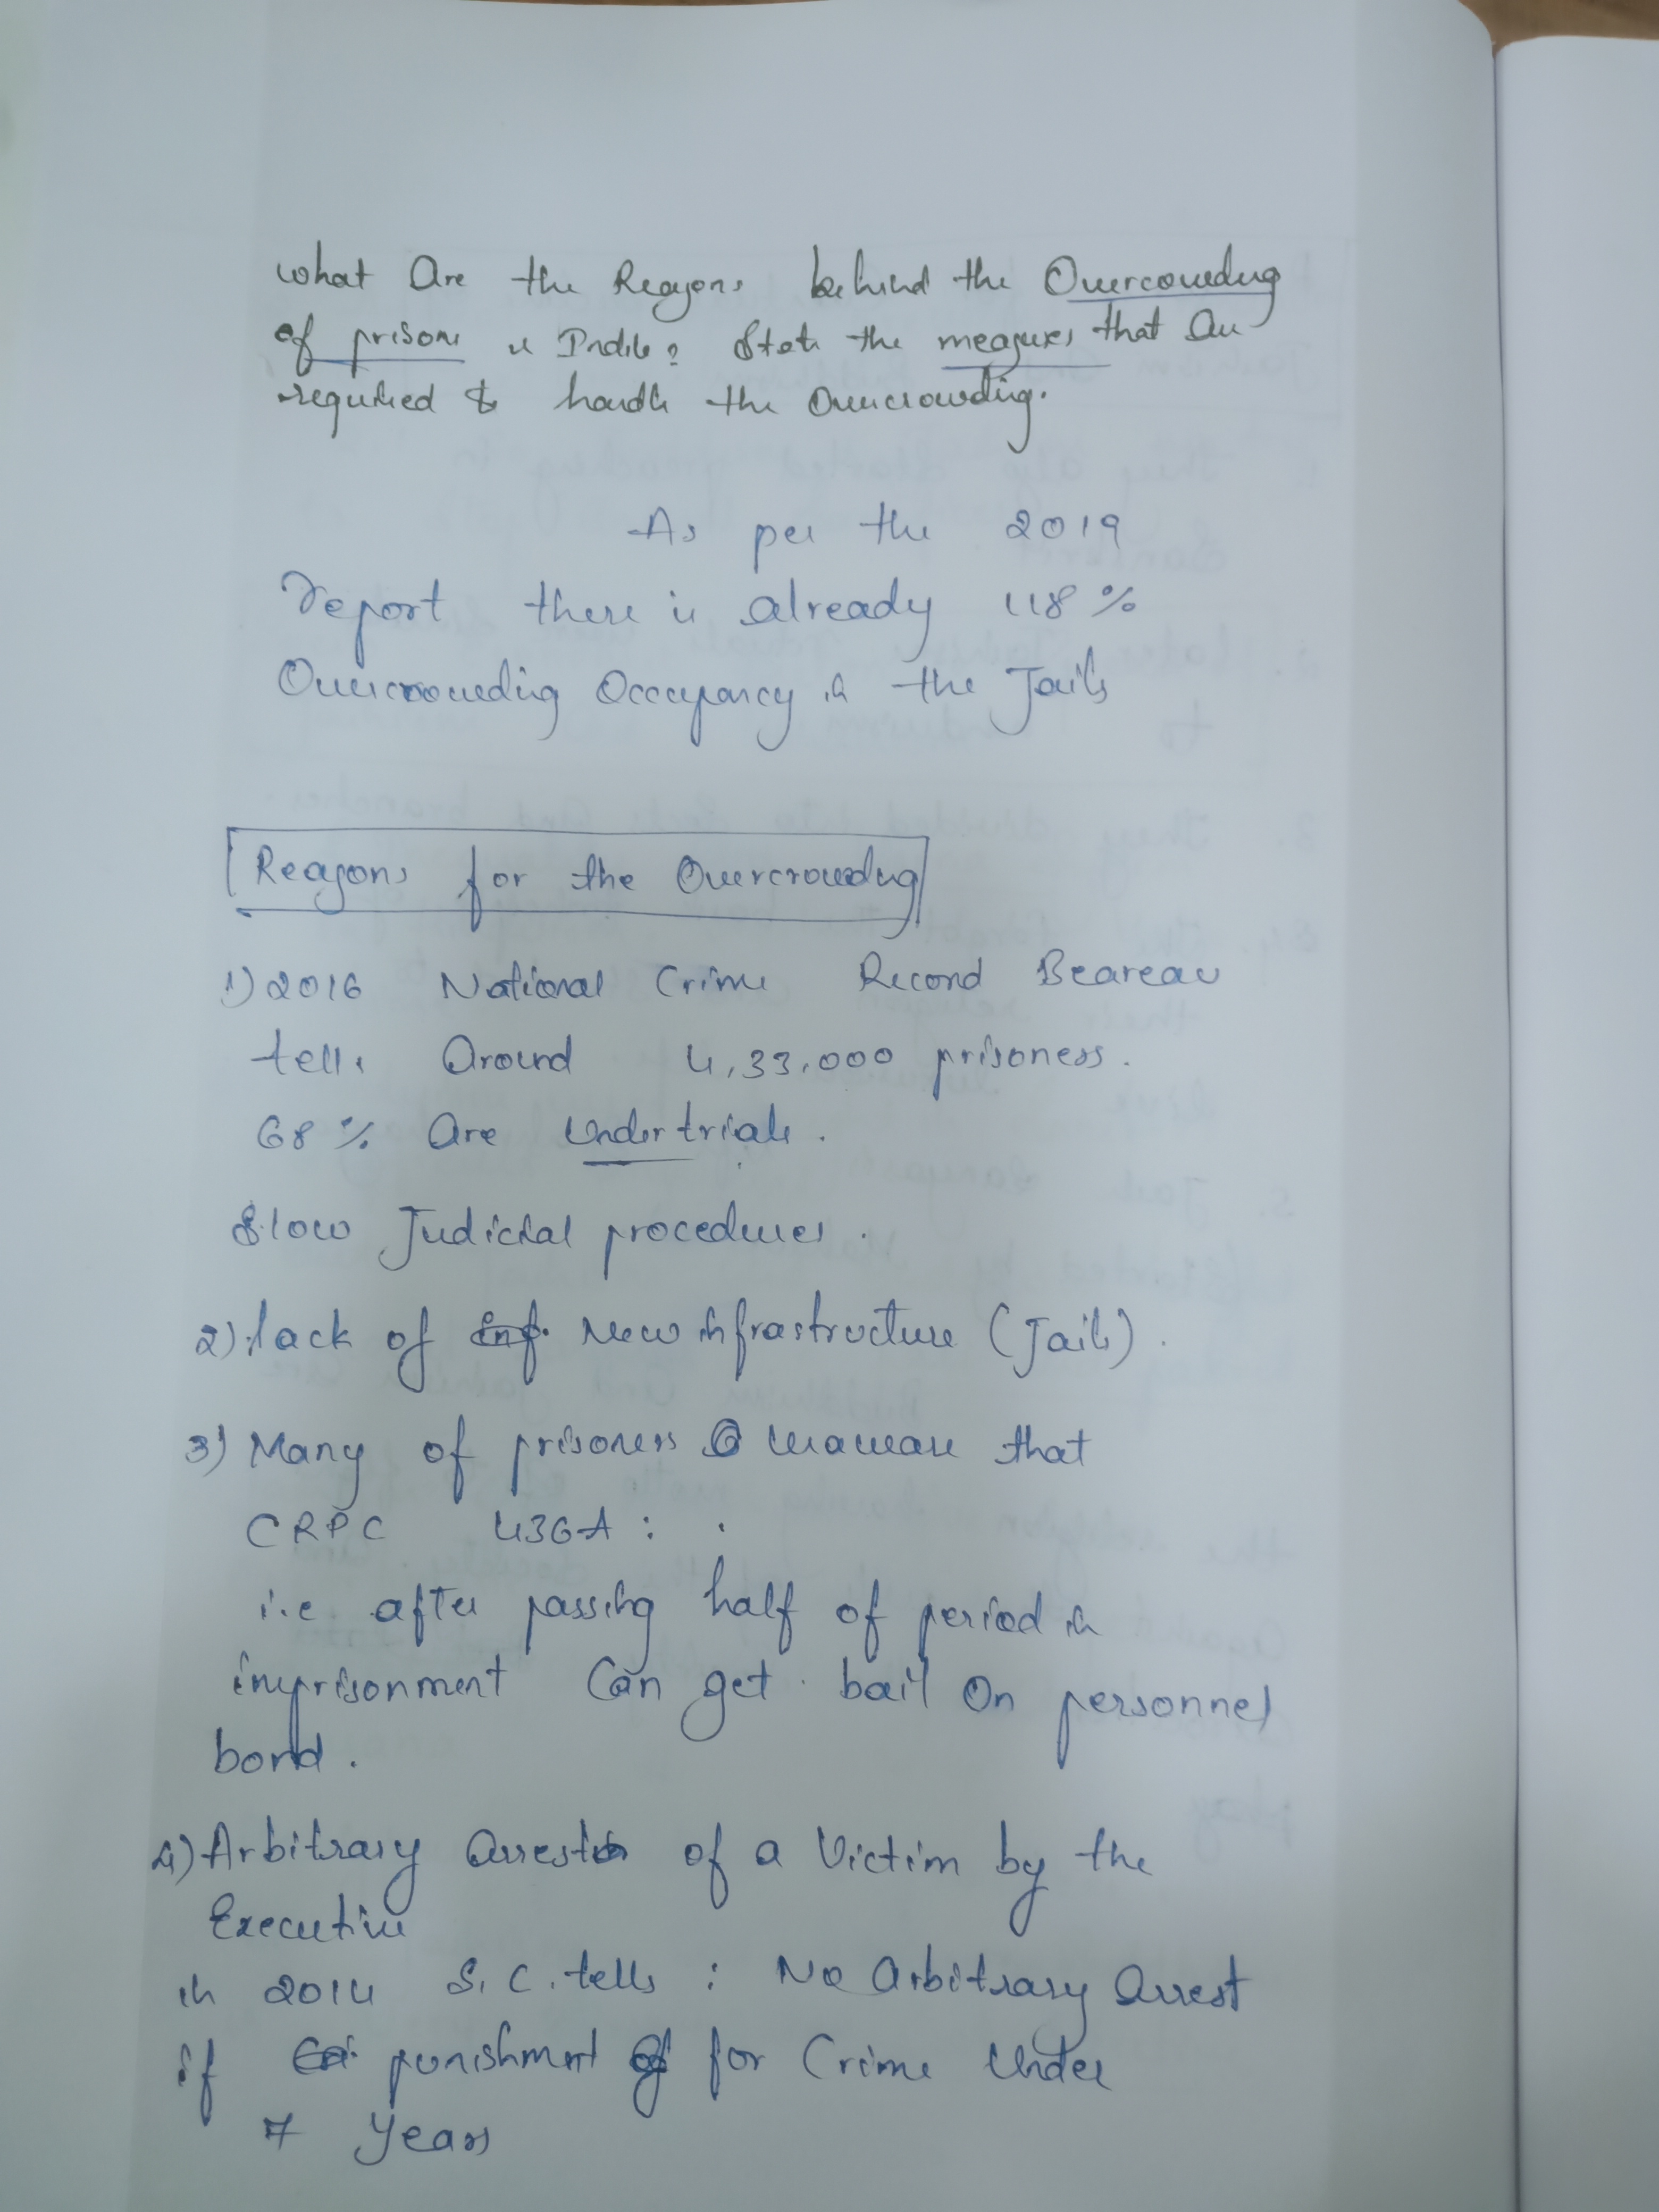 What Are the Reasons behind the Overcrowding
of prisons in India? State the measures that are
required to handle the Overcrowding.
As per the 2019
report there is already 118%
Overcrowding Occupancy in the Jails
Reasons for the Overcrowding
1) 2016 National Crime Record Beareau
tells Around 4,33,000 prisoners.
68% Are Undertrials.
Slow Judicial procedures.
2) lack of New infrastructure (Jails).
3) Many of prisoners unaware that
CRPC 436A :
i.e after passing half of period in
imprisonment Can get bail On personnel
bond.
4) Arbitrary Arrest of a Victim by the
Executive
in 2014 S.C. tells : No Arbitrary Arrest
if punishment for Crime Under
7 Years